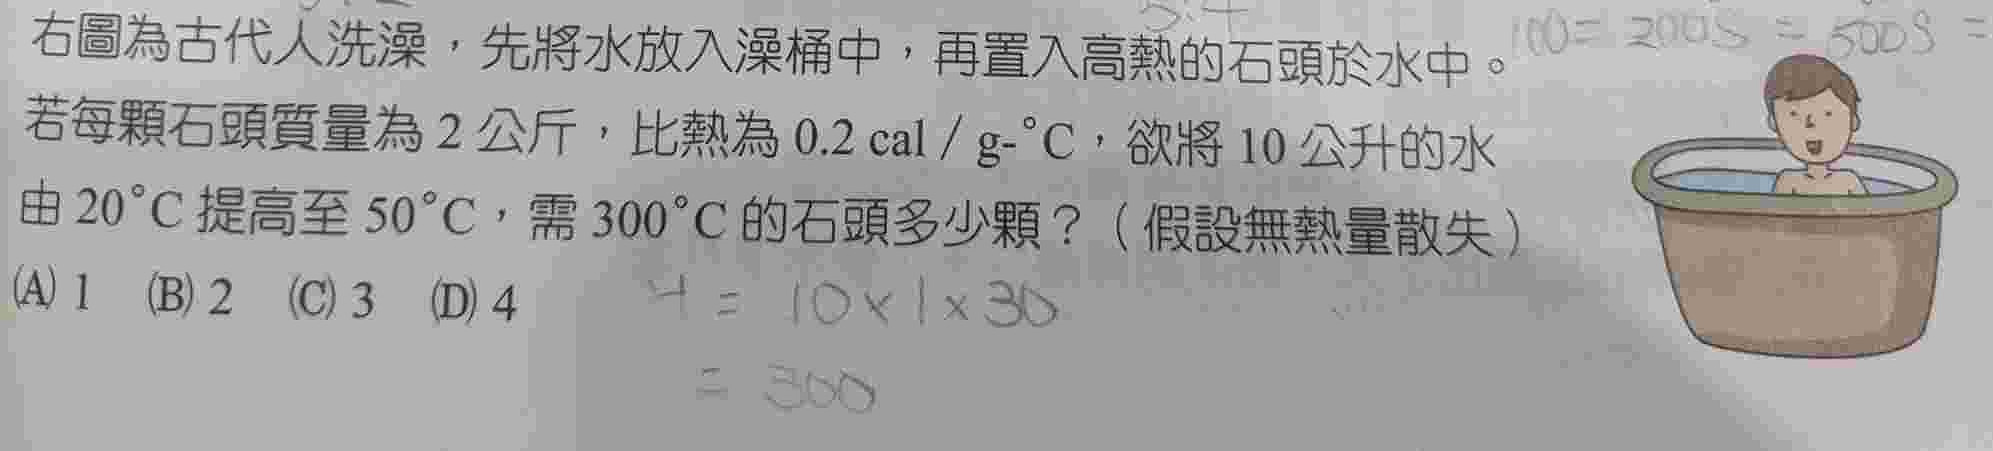 100 = 200S = 500S =
右圖為古代人洗澡，先將水放入澡桶中，再置入高熱的石頭於水中。
若每顆石頭質量為 2 公斤，比熱為 0.2 cal / g-°C，欲將 10 公升的水
由 20°C 提高至 50°C，需 300°C 的石頭多少顆？（假設無熱量散失）
(A) 1 (B) 2 (C) 3 (D) 4
H = 10 × 1 × 30
= 300